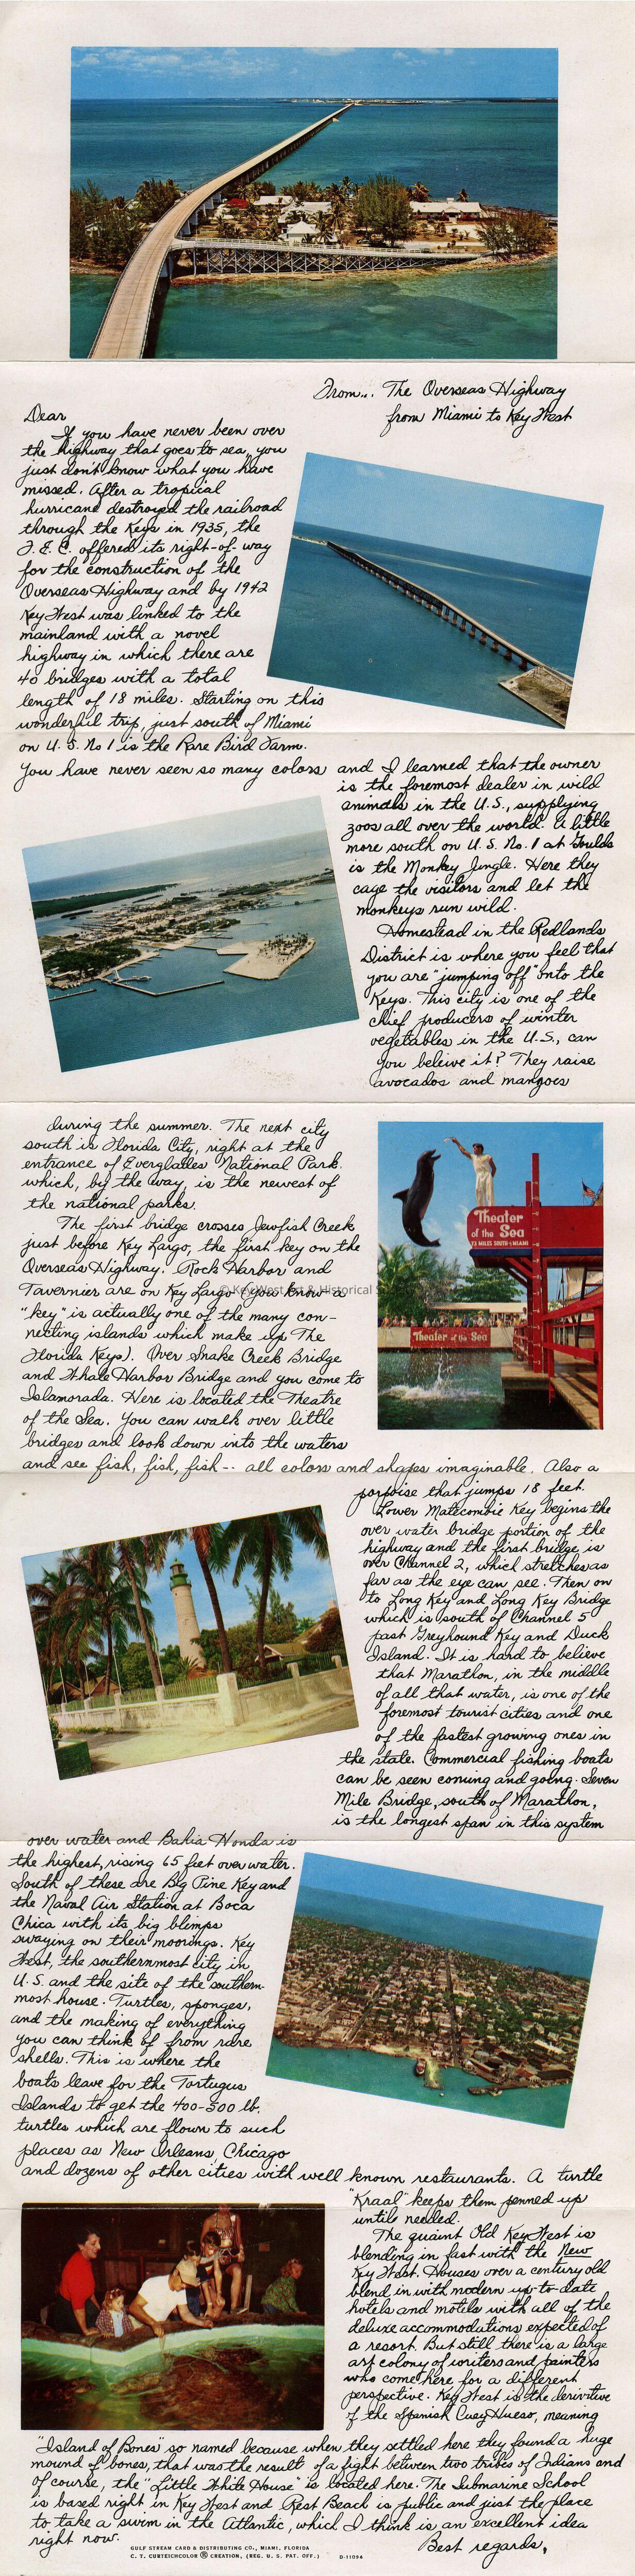 From... The Overseas Highway
from Miami to Key West
Dear
If you have never been over
the highway that goes to sea, you
just don't know what you have
missed. After a tropical
hurricane destroyed the railroad
through the Keys in 1935, the
F. E. C. offered its right-of-way
for the construction of the
Overseas Highway and by 1942
Key West was linked to the
mainland with a novel
highway in which there are
40 bridges with a total
length of 18 miles. Starting on this
wonderful trip, just south of Miami
on U.S. No 1 is the Rare Bird Farm.
You have never seen so many colors and I learned that the owner
is the foremost dealer in wild
animals in the U.S., supplying
zoos all over the world. A little
more south on U.S. No. 1 at Goulds
is the Monkey Jungle. Here they
cage the visitors and let the
monkeys run wild.
Homestead in the Redlands
District is where you feel that
you are "jumping off" onto the
Keys. This city is one of the
chief producers of winter
vegetables in the U.S., can
you beleive it? They raise
avocados and mangoes
during the summer. The next city
south is Florida City, right at the
entrance of Everglades National Park.
which, by the way, is the newest of
the national parks.
The first bridge crosses Jewfish Creek
just before Key Largo, the first key on the
Overseas Highway. Rock Harbor and
Tavernier are on Key Largo (you know - a
"key" is actually one of the many con-
necting islands which make up The
Florida Keys). Over Snake Creek Bridge
and Whale Harbor Bridge and you come to
Islamorada. Here is located the Theatre
of the Sea. You can walk over little
bridges and look down into the waters
and see fish, fish, fish -- all colors and shapes imaginable. Also a
Theater
of the Sea
73 MILES SOUTH-MIAMI
Theater of the Sea
© Key West Art & Historical S
porpoise that jumps 18 feet.
Lower Matecombie Key begins the
over water bridge portion of the
highway and the first bridge is
over Channel 2, which stretches as
far as the eye can see. Then on
to Long Key and Long Key Bridge
which is south of Channel 5
past Greyhound Key and Duck
Island. It is hard to believe
that Marathon, in the middle
of all that water, is one of the
foremost tourist cities and one
of the fastest growing ones in
the state. Commercial fishing boats
can be seen coming and going. Seven
Mile Bridge, south of Marathon,
is the longest span in this system
over water and Bahia Honda is
the highest, rising 65 feet over water.
South of these are Big Pine Key and
the Naval Air Station at Boca
Chica with its big blimps
swaying on their moorings. Key
West, the southernmost city in
U.S. and the site of the southern-
most house. Turtles, sponges,
and the making of everything
you can think of from rare
shells. This is where the
boats leave for the Tortugus
Islands to get the 400-500 lb.
turtles which are flown to such
places as New Orleans, Chicago
and dozens of other cities with well known restaurants. A turtle
"Kraal" keeps them penned up
until needed.
The quaint Old Key West is
blending in fast with the New
Key West. Houses over a century old
blend in with modern up-to-date
hotels and motels with all of the
deluxe accommodations expected of
a resort. But still there is a large
art colony of writers and painters
who come here for a different
perspective. Key West is the derivitive
of the Spanish Cuey Hueso, meaning
"Island of Bones" so named because when they settled here they found a huge
mound of bones, that was the result of a fight between two tribes of Indians and
of course, the "Little White House" is located here. The Submarine School
is based right in Key West and Rest Beach is public and just the place
to take a swim in the Atlantic, which I think is an excellent idea
right now.
Best regards,
GULF STREAM CARD & DISTRIBUTING CO., MIAMI, FLORIDA
C. T. CURTEICHCOLOR ® CREATION, (REG. U. S. PAT. OFF.)
D-11094